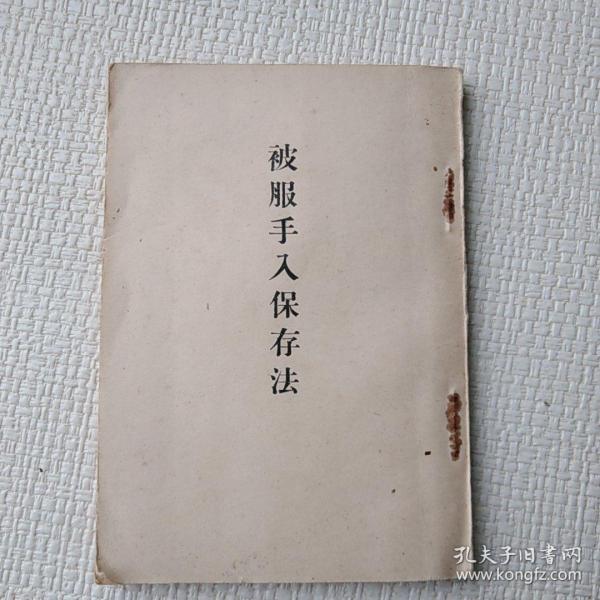 被服手入保存法
孔夫子旧書网
www.kongfz.com